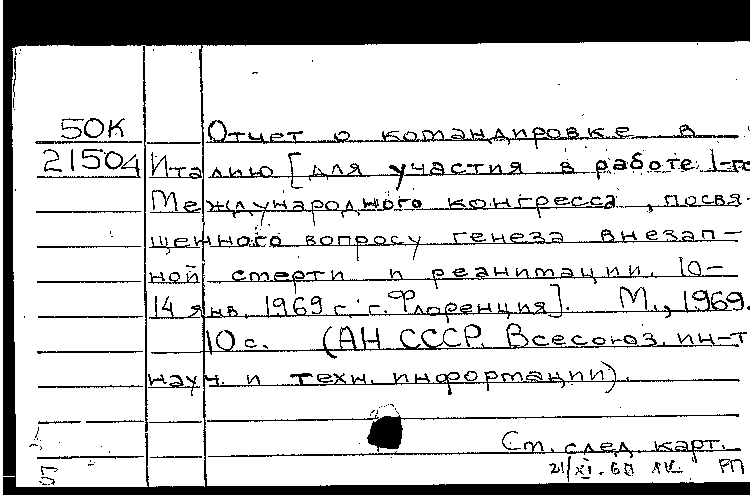 50К Отчет о командировке в
21504 Италию [для участия в работе 1-го
Международного конгресса, посвя-
щенного вопросу генеза внезап-
ной смерти и реанимации. 10-
14 янв. 1969 г. г. Флоренция]. М., 1969.
10 с. (АН СССР. Всесоюз. ин-т
науч. и техн. информации).
См. след. карт.
21/XI-69 РП